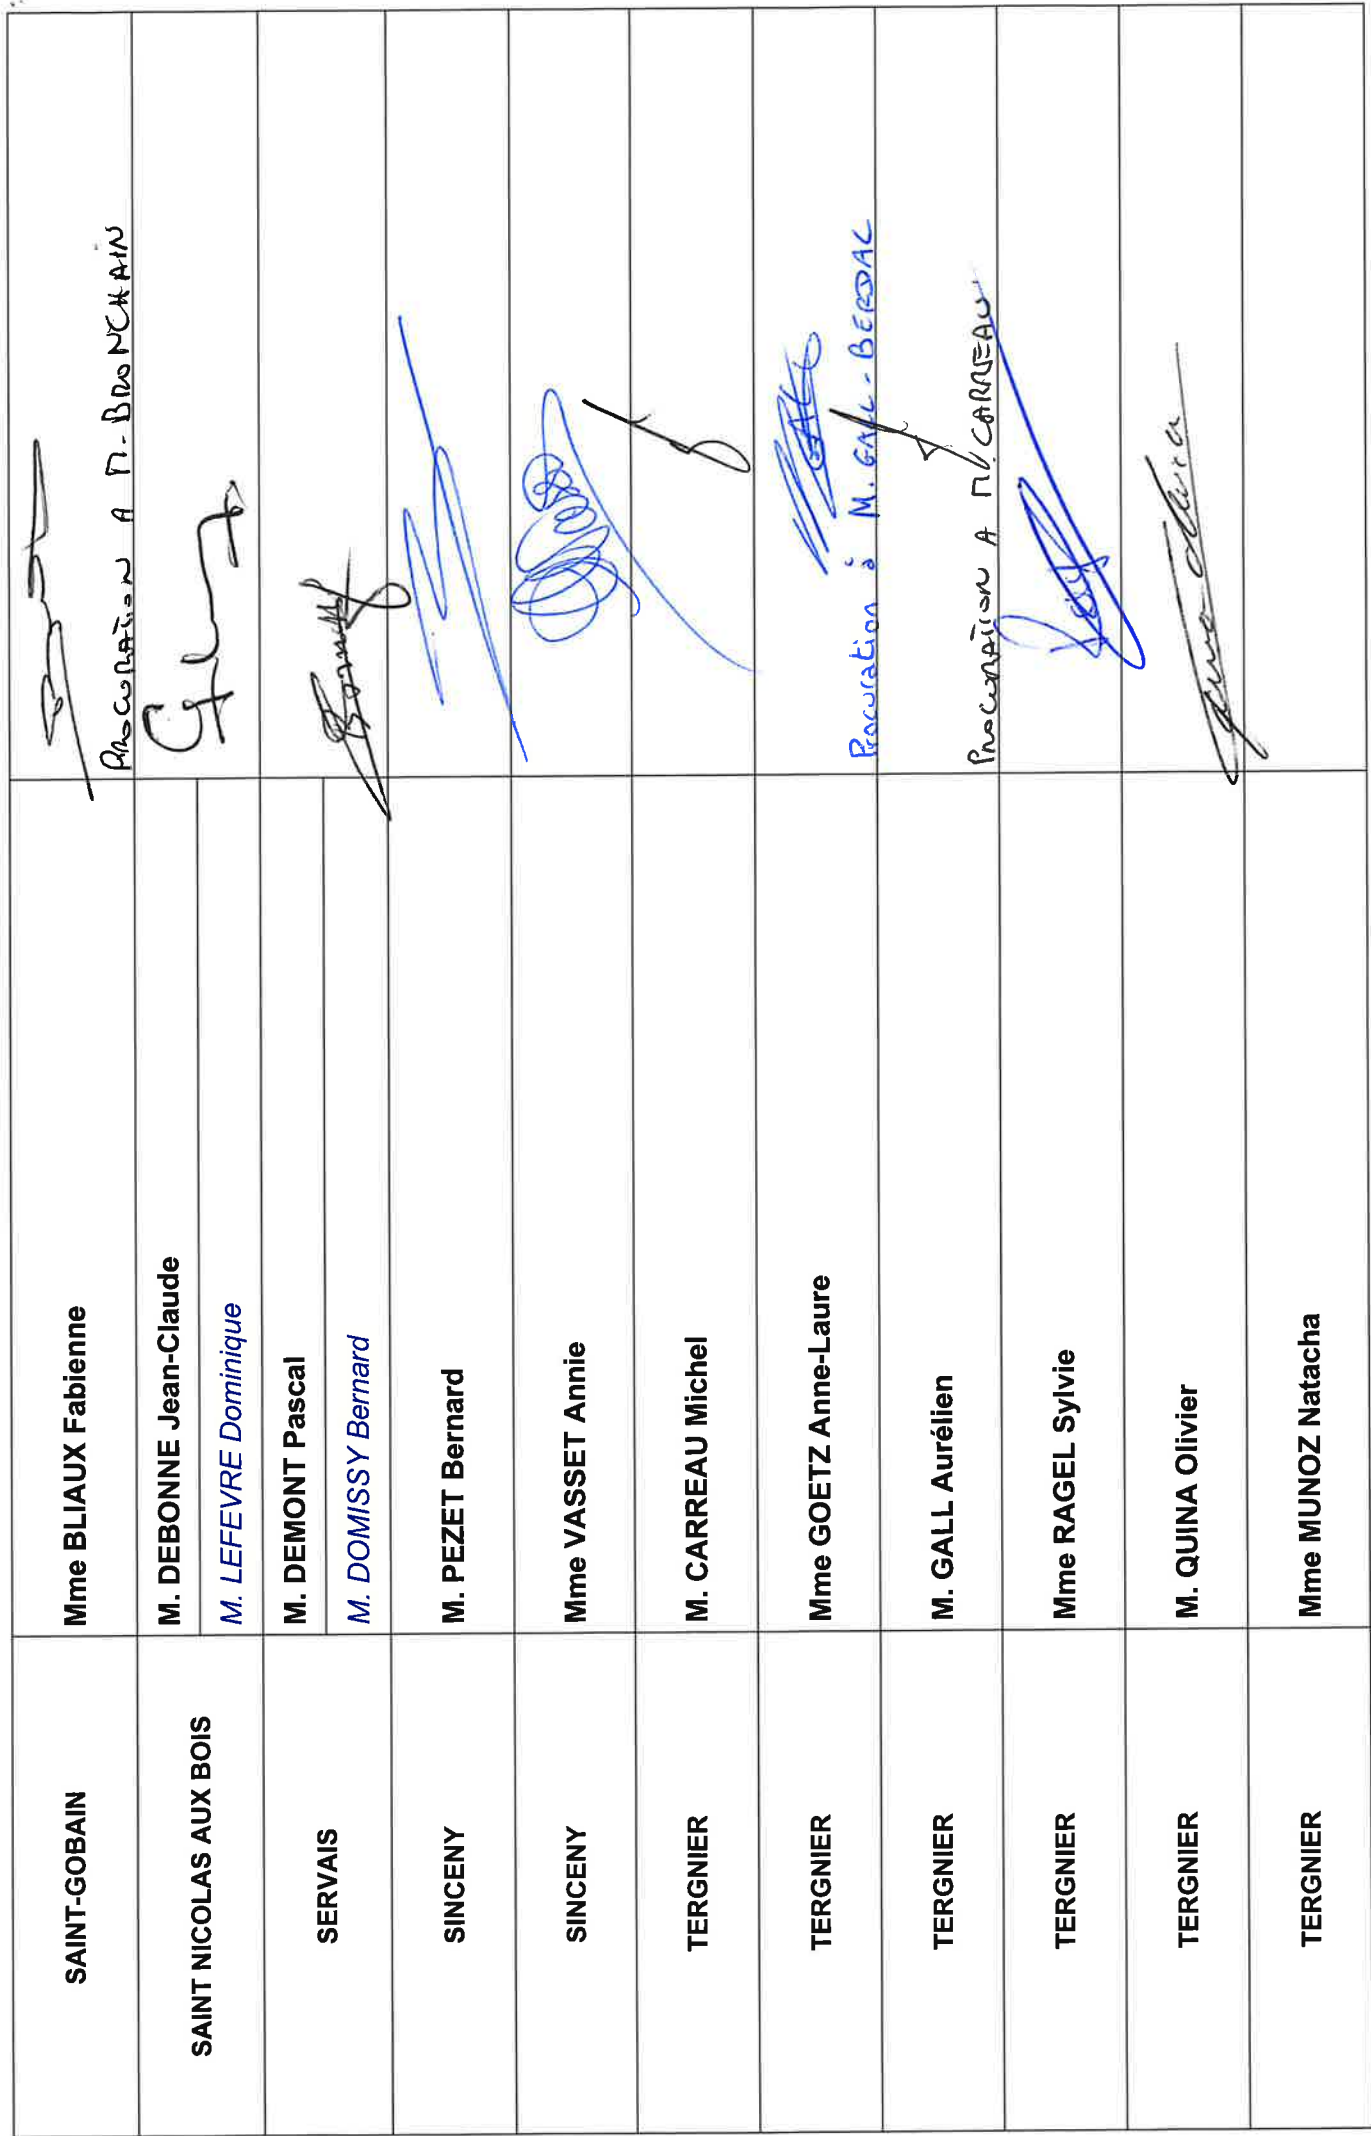 SAINT-GOBAIN
Mme BLIAUX Fabienne
PROCURATION A M. BRONCHAIN
SAINT NICOLAS AUX BOIS
M. DEBONNE Jean-Claude
M. LEFEVRE Dominique
SERVAIS
M. DEMONT Pascal
M. DOMISSY Bernard
SINCENY
M. PEZET Bernard
SINCENY
Mme VASSET Annie
TERGNIER
M. CARREAU Michel
TERGNIER
Mme GOETZ Anne-Laure
Procuration à M. GALL-BERDAL
TERGNIER
M. GALL Aurélien
PROCURATION A M. CARREAU
TERGNIER
Mme RAGEL Sylvie
TERGNIER
M. QUINA Olivier
TERGNIER
Mme MUNOZ Natacha